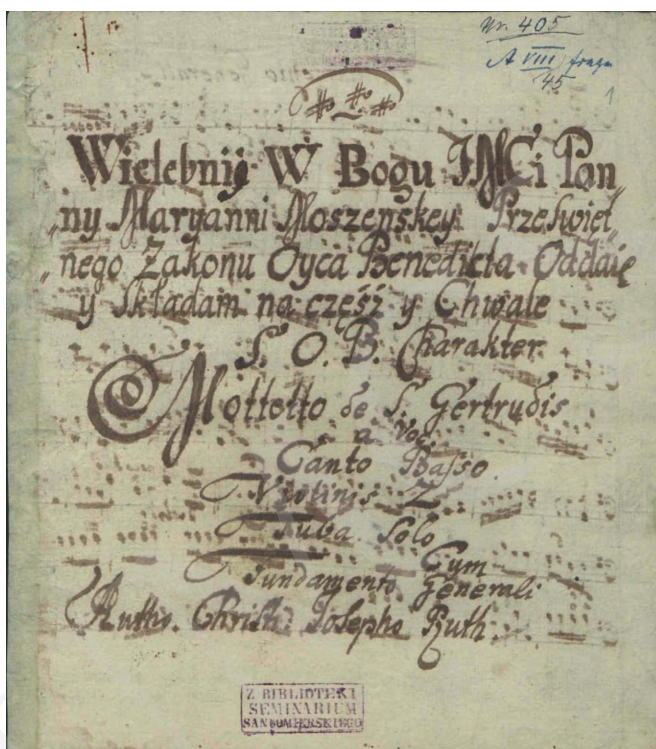 Nr. 405
A VIII fragm
45
1
Wielebnij W Bogu JMCi Pan„
„ny Maryanni Moszenskey Przeswięt„
„nego Zakonu Oyca Benedicta Oddaię
y Składam na część y Chwałe
S. O. B. Charakter
Mottetto de S. Gertrudis
a Voc:
Canto Basso
Violinis 2
Tuba Solo
Cum
Fundamento Generali
Autho. Christi: Josepho Ruth.
Z BIBLIOTEKI
SEMINARIUM
SANDOMIERSKIEGO